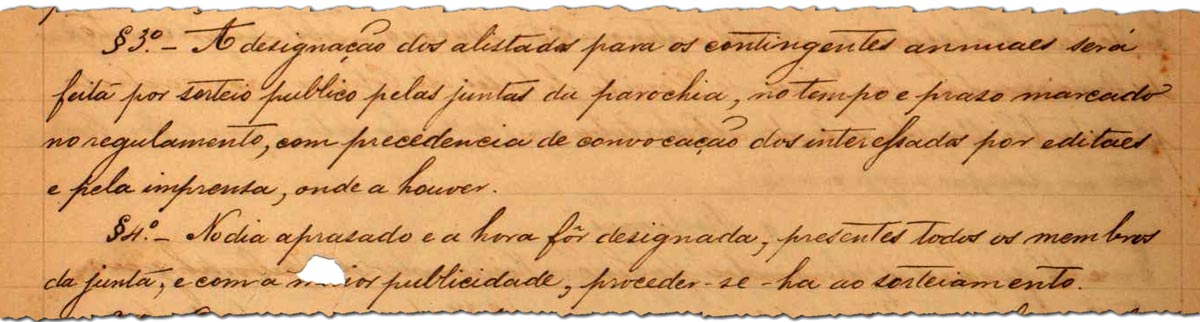 § 3.º - A designação dos alistados para os contingentes annuaes será
feita por sorteio publico pelas juntas da parochia, no tempo e praso marcado
no regulamento, com precedencia de convocação dos interessados por editaes
e pela imprensa, onde a houver.
§ 4.º - No dia aprasado e a hora fôr designada, presentes todos os membros
da junta, e com a publicidade, proceder-se-ha ao sorteiamento.